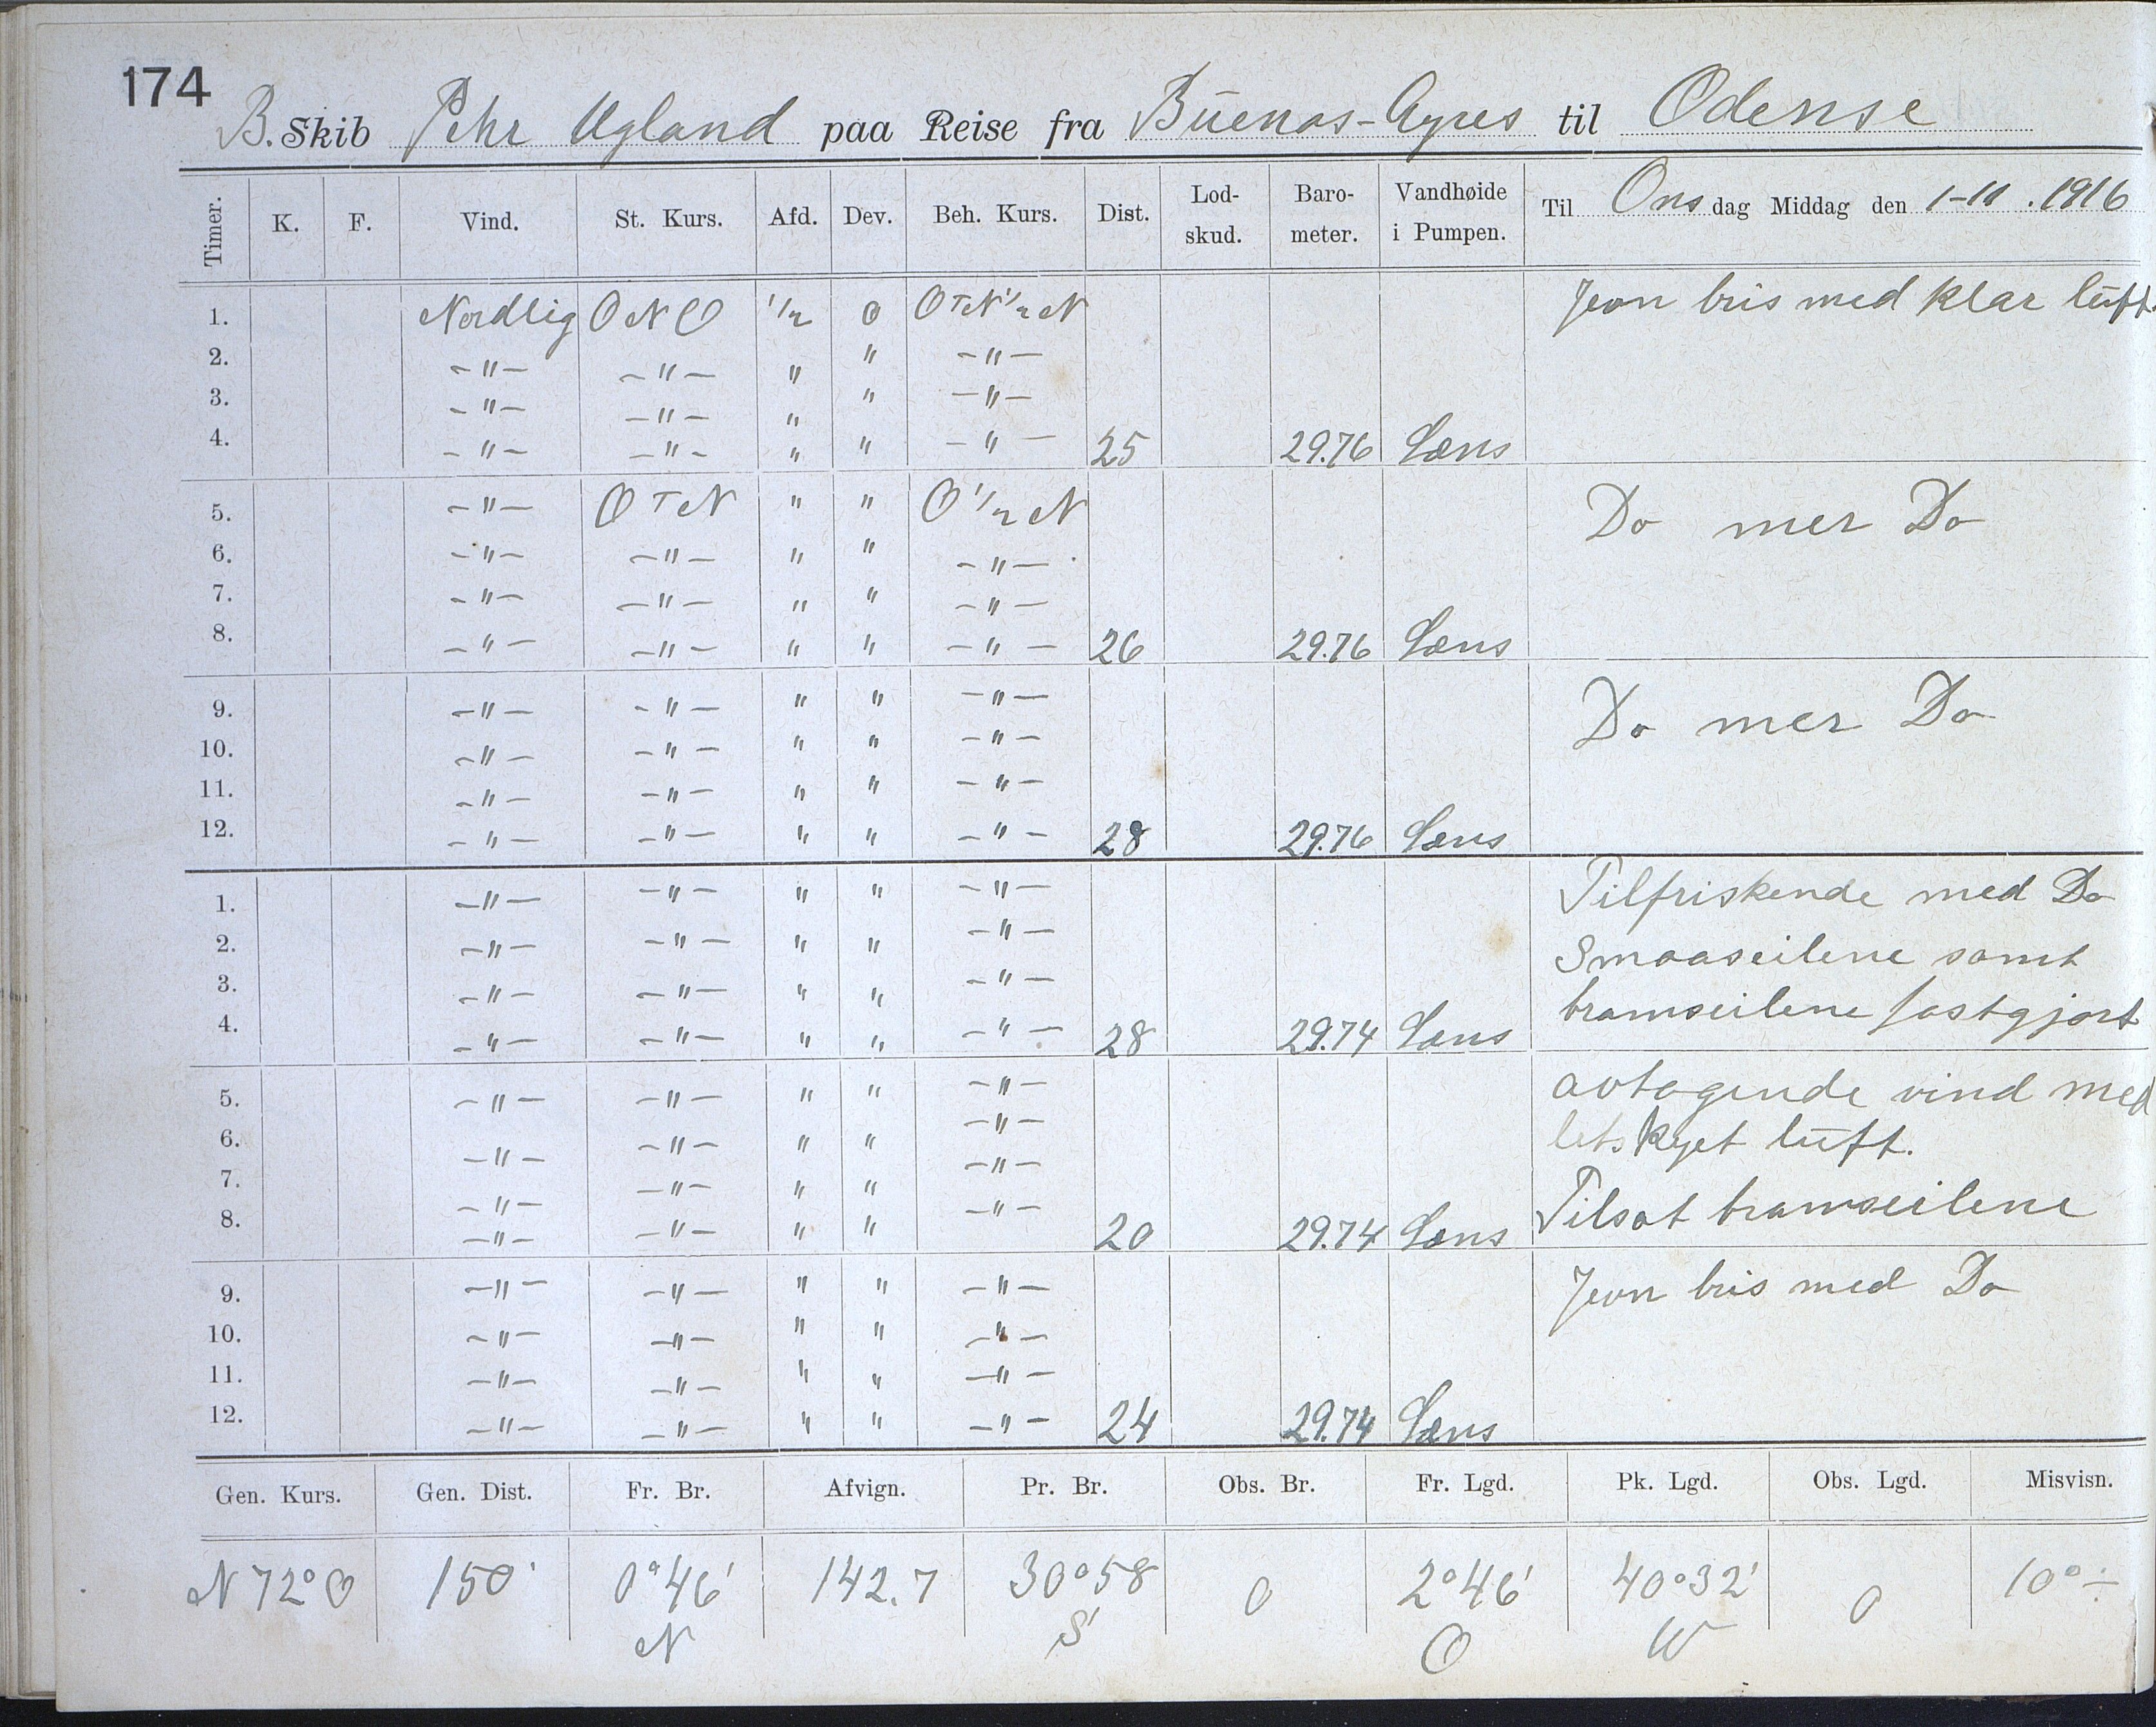 174
B. Skib Pehr Ugland paa Reise fra Buenos-Ayres til Odense
Timer. K. F. Vind. St. Kurs. Afd. Dev. Beh. Kurs. Dist. Lod-skud. Baro-meter. Vandhøide i Pumpen. Til Onsdag Middag den 1-11.1916
1. Nordlig ONO 1/2 0 OTN1/2N Jevn bris med klar luft.
2. -"- -"- " " -"-
3. -"- -"- " " -"-
4. -"- -"- " " -"- 25 29.76 Læns
5. -"- OTN " " O1/2N Do mer Do
6. -"- -"- " " -"-
7. -"- -"- " " -"-
8. -"- -"- " " -"- 26 29.76 Læns
9. -"- -"- " " -"- Do mer Do
10. -"- -"- " " -"-
11. -"- -"- " " -"-
12. -"- -"- " " -"- 28 29.76 Læns
1. -"- -"- " " -"- Tilfriskende med Do
2. -"- -"- " " -"- Smaaseilene samt
3. -"- -"- " " -"- bramseilene fastgjort
4. -"- -"- " " -"- 28 29.74 Læns
5. -"- -"- " " -"- avtagende vind med
6. -"- -"- " " -"- letskyet luft.
7. -"- -"- " " -"-
8. -"- -"- " " -"- 20 29.74 Læns Tilsat bramseilene
9. -"- -"- " " -"- Jevn bris med Do
10. -"- -"- " " -"-
11. -"- -"- " " -"-
12. -"- -"- " " -"- 24 29.74 Læns
Gen. Kurs. Gen. Dist. Fr. Br. Afvign. Pr. Br. Obs. Br. Fr. Lgd. Pk. Lgd. Obs. Lgd. Misvisn.
N 72° O 150' 0°46' 142.7 30°58 0 2°46' 40°32' 0 10°÷
N S O W